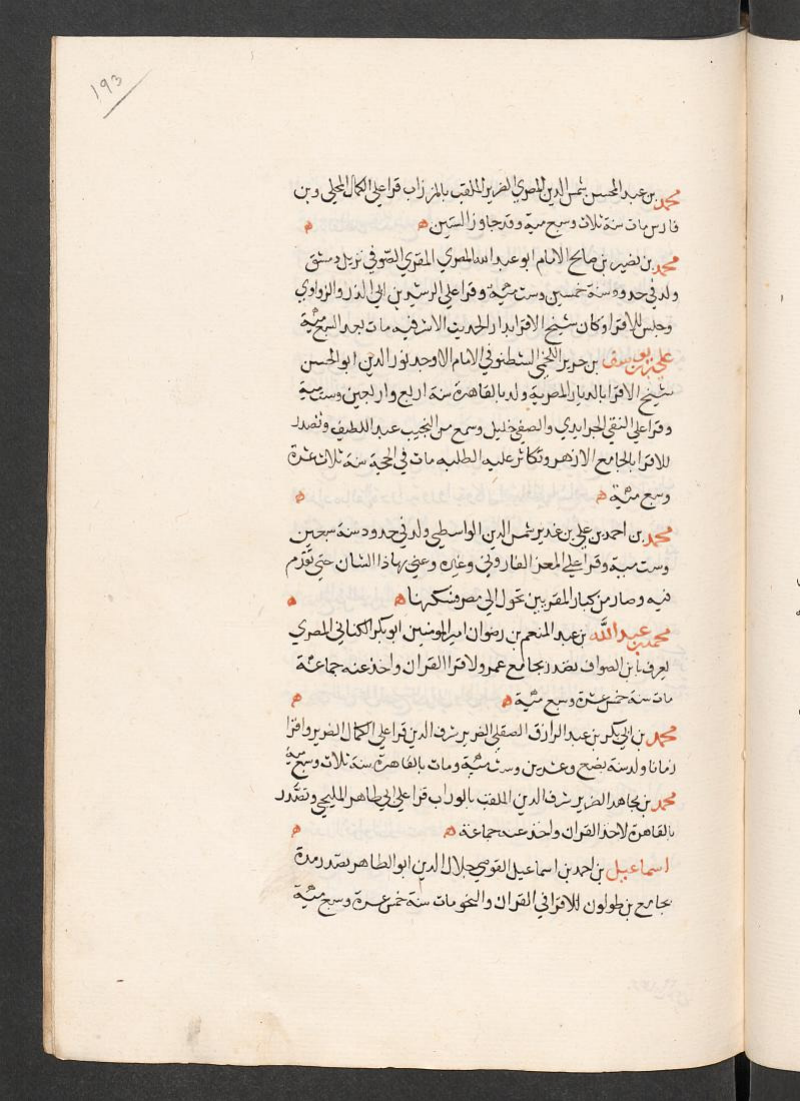 193
محمد بن عبد المحسن شمس الدين المصري الضرير الملقب بالمزراب قرا على الكمال المحلي وبن
فارس مات سنة ثلاث وسبع مية وقد جاوز الستين ه ه
محمد بن نصير بن صالح الامام ابو عبد الله المصري المقري الصوفي نزيل دمشق
ولد في حدود سنة خمسين وست مئية وقرا علي الرشيد بن ابي الدر والزواوي
وجلس للاقرا وكان شيخ الاقرا بدار الحديث الاشرفيه مات بعد السبع مئية
علي بن يوسف بن حرير اللخمي الشطنوفي الامام الاوحد نور الدين ابو الحسن
شيخ الاقرا بالديار المصرية ولد بالقاهرة سنة اربع واربعين وست مية
وقرا علي التقي الجرايدي والصفي خليل وسمع من النجيب عبد اللطيف وتصدر
للاقرا بالجامع الازهر وتكاثر عليه الطلبه مات في الحجة سنة ثلاث عشرة
وسبع مئية ه ه
محمد بن احمد بن علي بن غدير شمس الدين الواسطي ولد في حدود سنة سبعين
وست مية وقرا علي المعز الفاروثي وغيره وعني بهاذا الشان حتي تقدم
فيه وصار من كبار المقريين تحول الي مصر فسكنها ه ه
محمد بن عبد الله بن عبد المنعم بن رضوان امير المومنين ابو بكر الكناني المصري
يعرف بابن الصواف تصدر بجامع عمرو لاقرا القران واخذ عنه جماعة
مات سنة خمس عشرة وسبع مئية ه ه
محمد بن ابي بكر بن عبد الرازق الصقلي الضرير شرف الدين قرا علي الكمال الضرير واقرا
زمانا ولد سنة بضع وعشرين وست مئية ومات بالقاهرة سنة ثلاث وسبع مية
محمد بن مجاهد الضرير شرف الدين الملقب بالوراب قرا علي ابي طاهر المليجي وتصدر
بالقاهرة لاخذ القران واخذ عنه جماعة ه ه
اسماعيل بن احمد بن اسماعيل القوصي جلال الدين ابو الطاهر تصدر مدة
بجامع بن طولون للاقرا في القران والنحو مات سنة خمس عشرة وسبع مئية